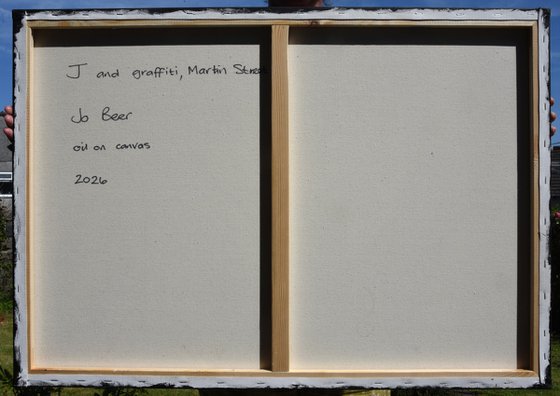 J and graffiti, Martin Street
Jo Beer
oil on canvas
2026